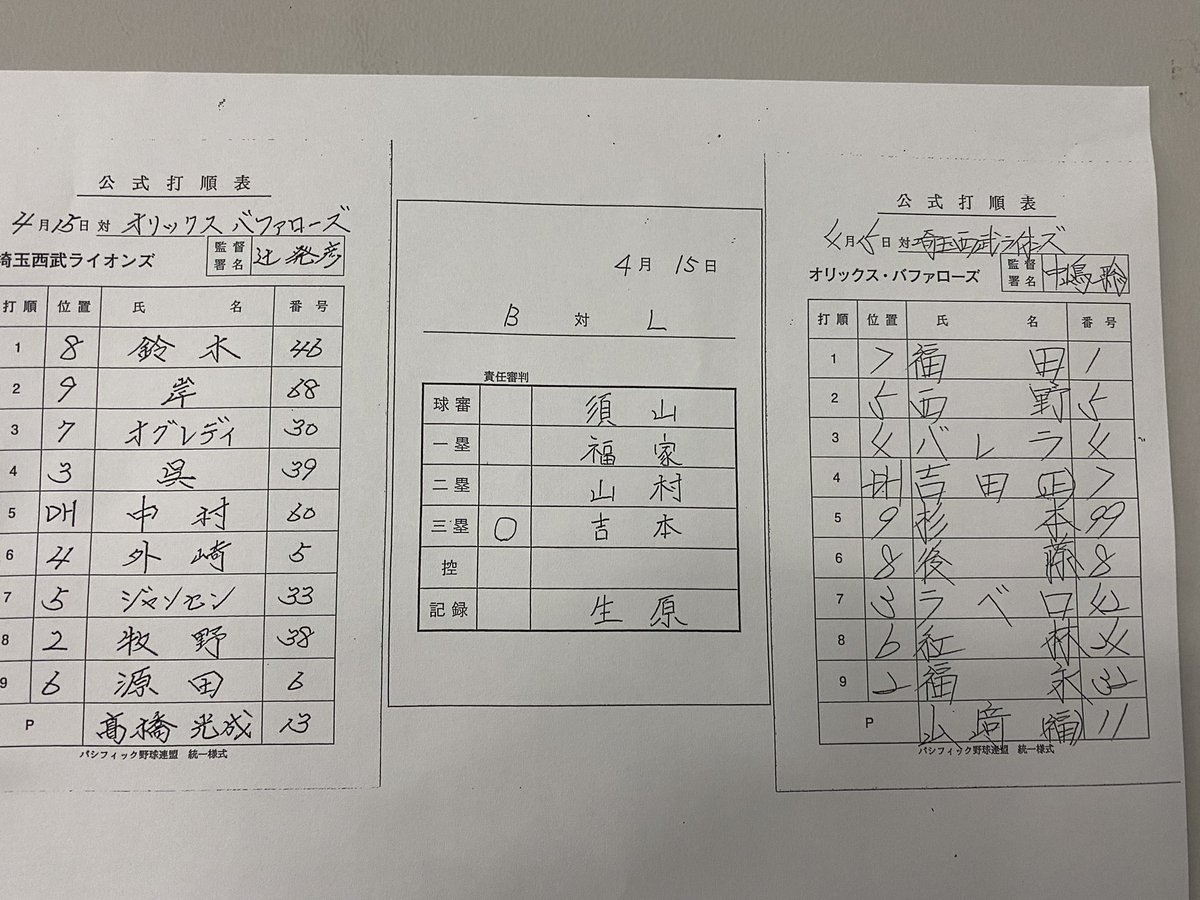 公式打順表
4月15日 対 オリックスバファローズ
埼玉西武ライオンズ 監督署名 辻発彦
打順 位置 氏名 番号
1 8 鈴木 46
2 9 岸 68
3 7 オグレディ 30
4 3 呉 39
5 DH 中村 60
6 4 外崎 5
7 5 ジャンセン 33
8 2 牧野 38
9 6 源田 6
P 髙橋光成 13
パシフィック野球連盟 統一様式
4月15日
B 対 L
責任審判
球審 須山
一塁 福家
二塁 山村
三塁 ○ 吉本
控
記録 生原
公式打順表
4月15日 対 埼玉西武ライオンズ
オリックス・バファローズ 監督署名 中嶋聡
打順 位置 氏名 番号
1 7 福田 1
2 5 西野 5
3 4 バレラ 4
4 DH 吉田(正) 7
5 9 杉本 99
6 8 後藤 8
7 3 ラベロ 42
8 6 紅林 24
9 2 福永 32
P 山﨑(福) 11
パシフィック野球連盟 統一様式